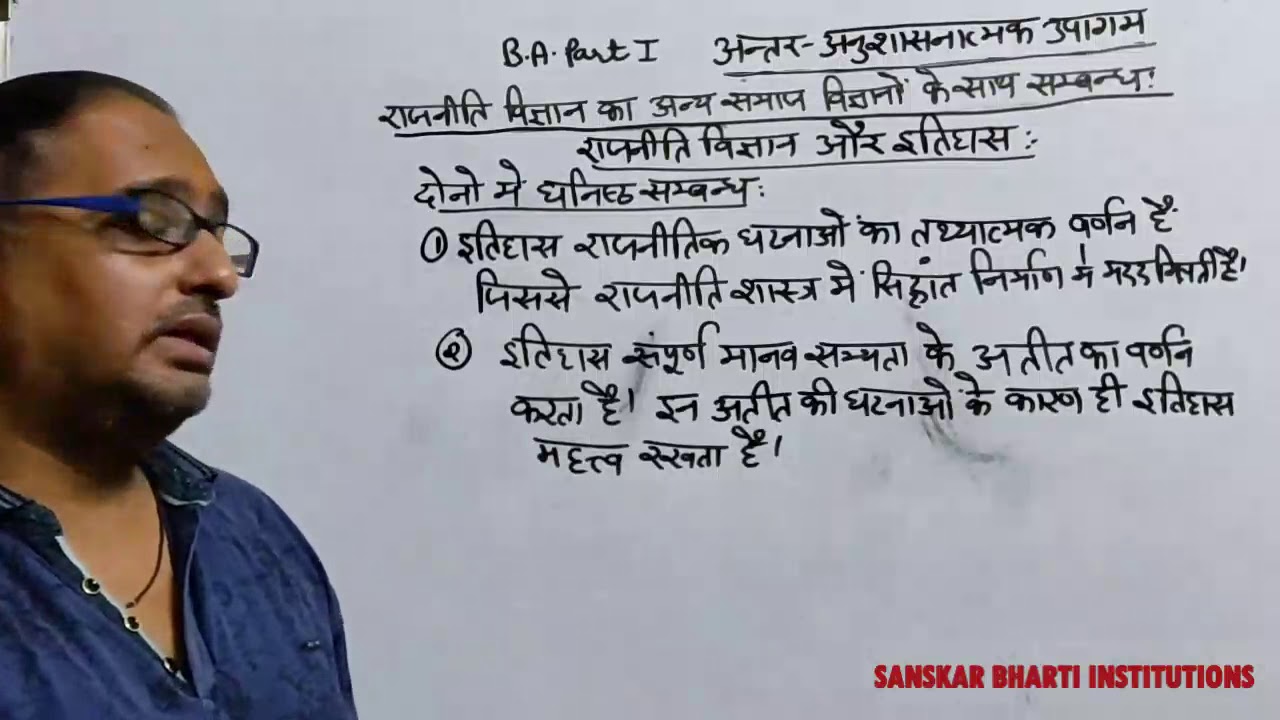 B.A. Part I अन्तर-अनुशासनात्मक उपागम
राजनीति विज्ञान का अन्य समाज विज्ञानों के साथ सम्बन्ध:
राजनीति विज्ञान और इतिहास :-
दोनो मे घनिष्ठ सम्बन्ध:
① इतिहास राजनीतिक घटनाओं का तथ्यात्मक वर्णन है
जिससे राजनीति शास्त्र में सिद्धांत निर्माण में मदद मिलती है।
② इतिहास संपूर्ण मानव सभ्यता के अतीत का वर्णन
करता है। इन अतीत की घटनाओं के कारण ही इतिहास
महत्त्व रखता है।
SANSKAR BHARTI INSTITUTIONS